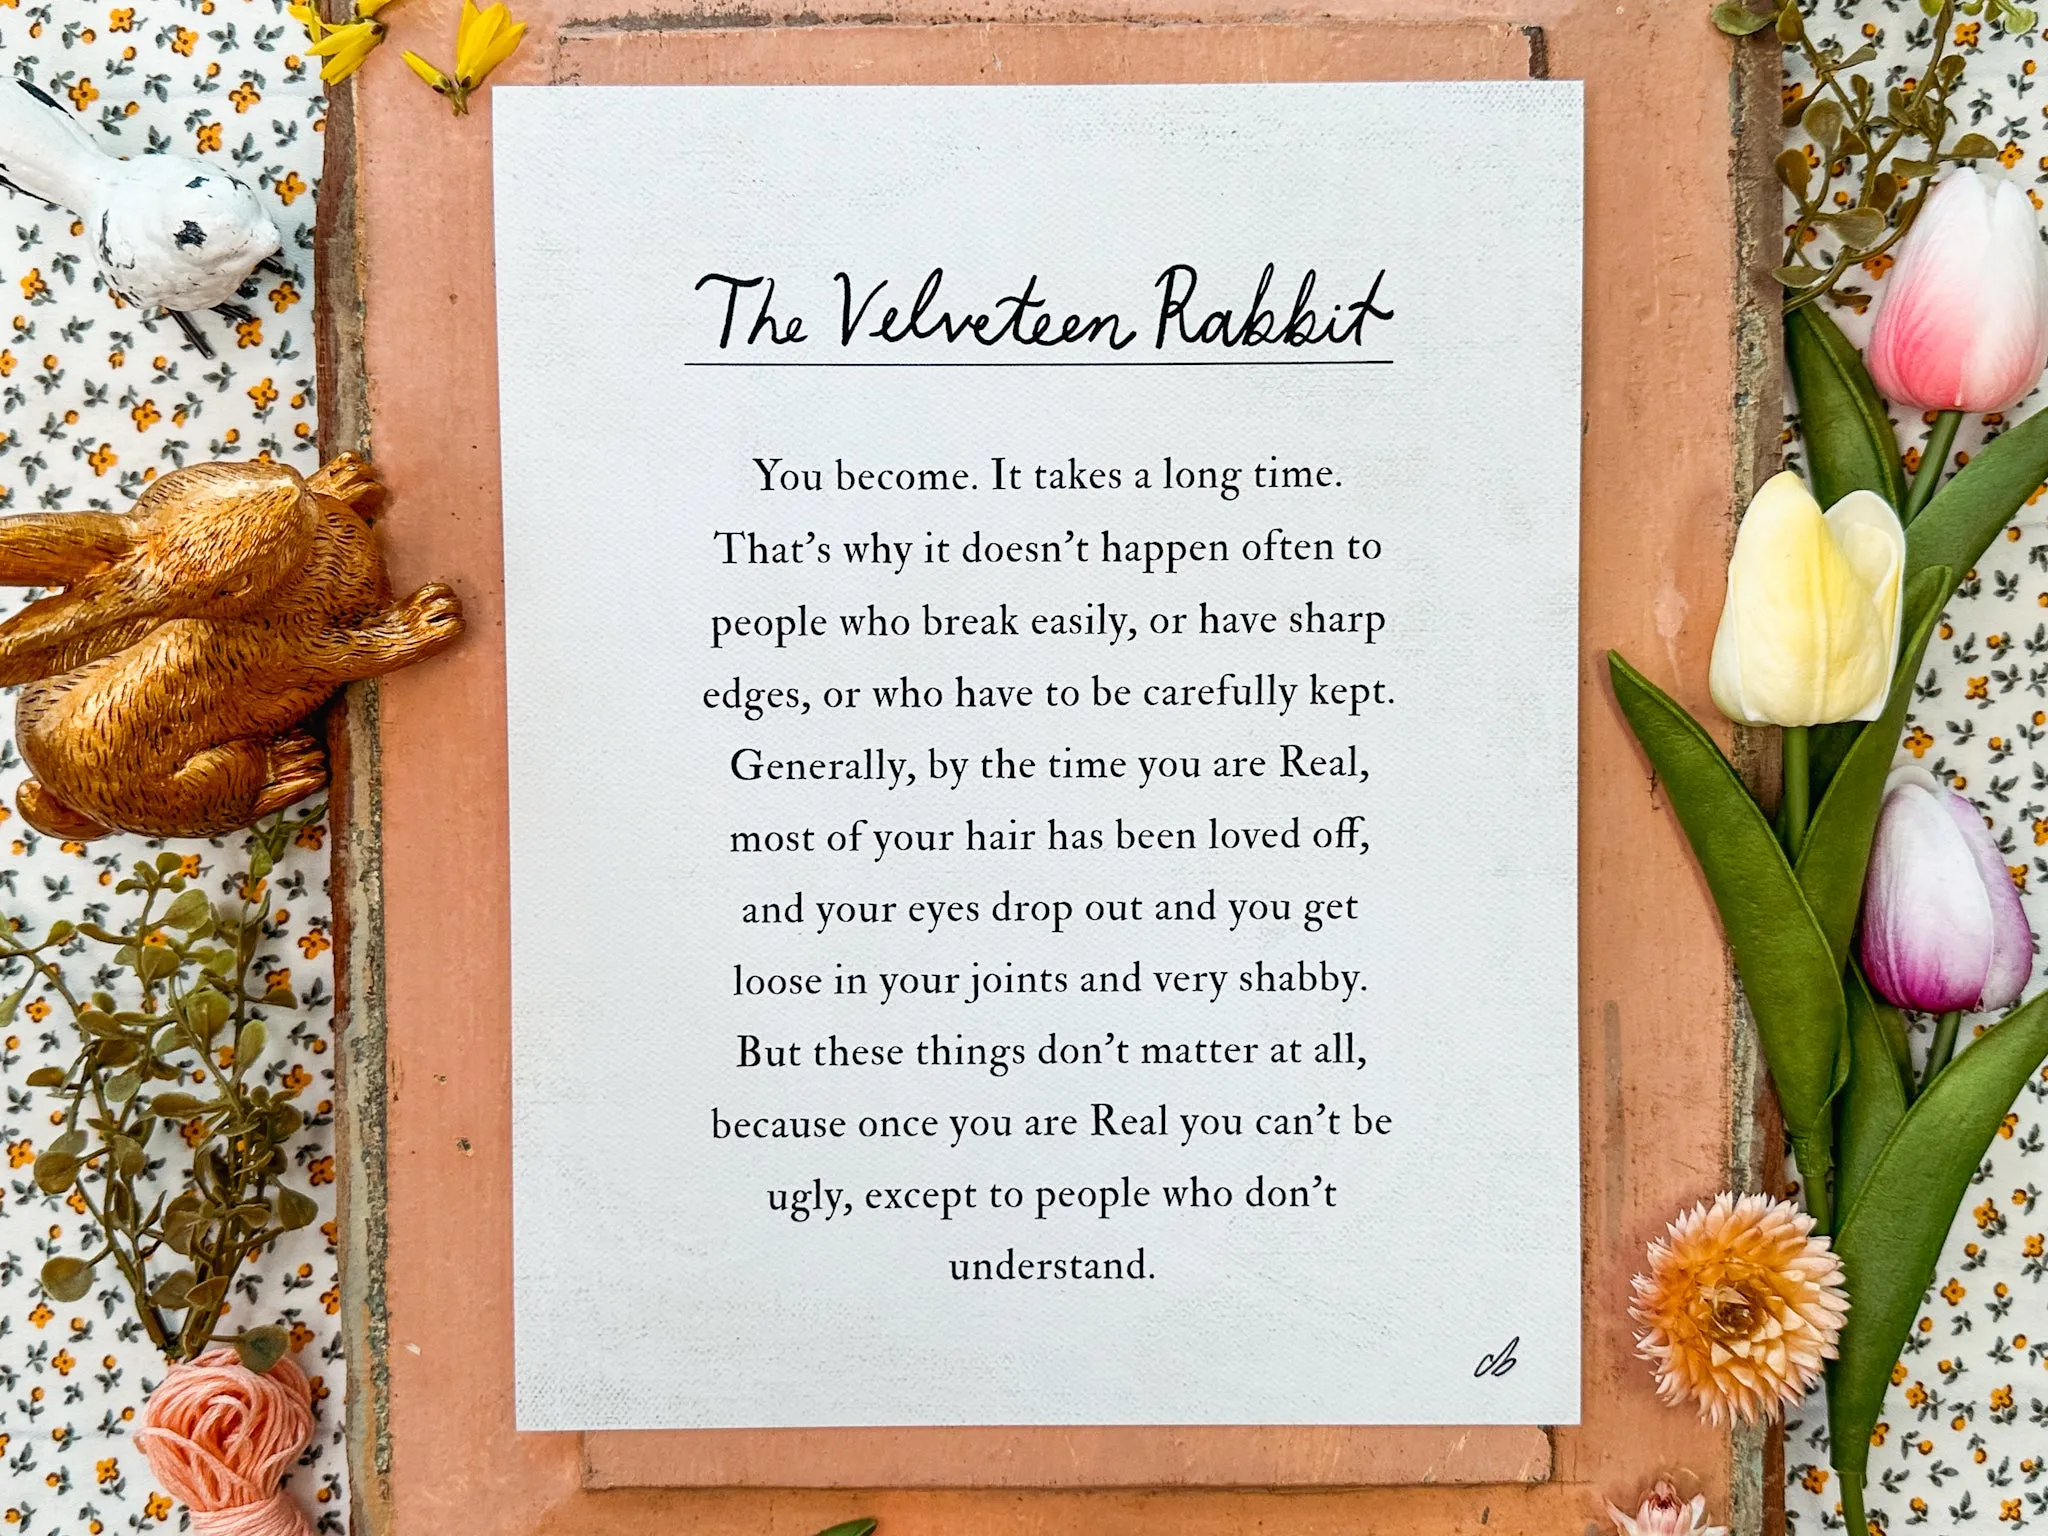 The Velveteen Rabbit
You become. It takes a long time.
That's why it doesn't happen often to
people who break easily, or have sharp
edges, or who have to be carefully kept.
Generally, by the time you are Real,
most of your hair has been loved off,
and your eyes drop out and you get
loose in your joints and very shabby.
But these things don't matter at all,
because once you are Real you can't be
ugly, except to people who don't
understand.